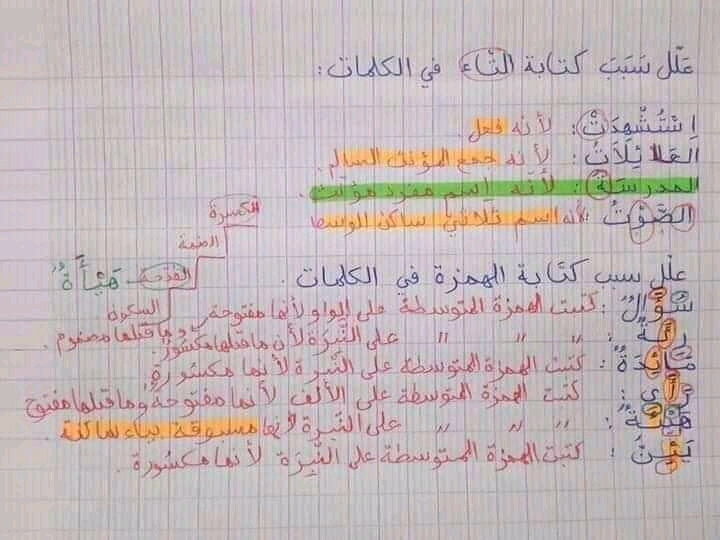 عَلّل سَبَبَ كتابة التاء في الكلمات:
اِسْتُشْهِدَتْ: لأنه فعل.
العَائِلَاتُ: لأنه جمع المؤنث السالم.
المدرسَة: لأنّه إسم مفرد مؤنث.
الصَّوْتُ: لأنه اسم ثلاثي ساكن الوسط
الكسرة
الضمة
الفتحة
السكون
هَيْأَةٌ
علّل سبب كتَابة الهمزة في الكلمات.
سُؤَالٌ: كتبت الهمزة المتوسطة على الواو لأنها مفتوحة وما قبلها مضموم.
رِئَةٌ: " " " على النّبرَة لأن ماقبلها مكسورٌ.
مَائِدَةٌ: كتبت الهمزة المتوسطة على النّبرة لأنها مكسورة
رَأَى: كتبت الهمزة المتوسطة على الألف لأنها مفتوحة وماقبلها مفتوح
هَيْئَةٌ: " " " على النّبرة لأنها مسبوقة بياء ساكنة
يَئِنُّ: كتبت الهمزة المتوسطة على النَّبِرَة لأنها مكسورة.